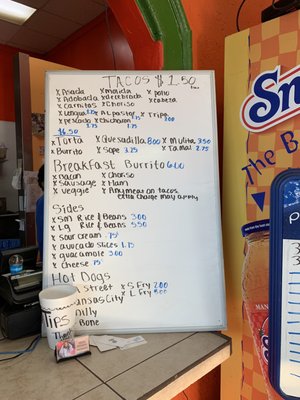 TACOS $1.50
x Asada x maicin x pollo
x Adobada x deshebrada x Cabeza
x Carnitas x Choriso
x Lengua 1.75 x Al pastor x Tripa 2.00
x pescado 1.75 x Chicharon 1.75
$6.50
x Torta x Quesadilla 8.00 x Mulita 3.50
x Burrito x Sope 3.25 x Tamal 2.75
Breakfast Burrito 6.00
x Bacon x Choriso
x Sausage x Ham
x veggie x Any meat on tacos
extra charge may apply
Sides
x Sm Rice & Beans 3.00
x Lg Rice & Beans 5.50
x Sour cream .75
x avocado slices 1.75
x guacamole 3.00
x cheese .75
Hot Dogs
Street x S Fry 2.00
Kansas City x L Fry
Philly
Bone
TIPS
Sn
The B
MAN